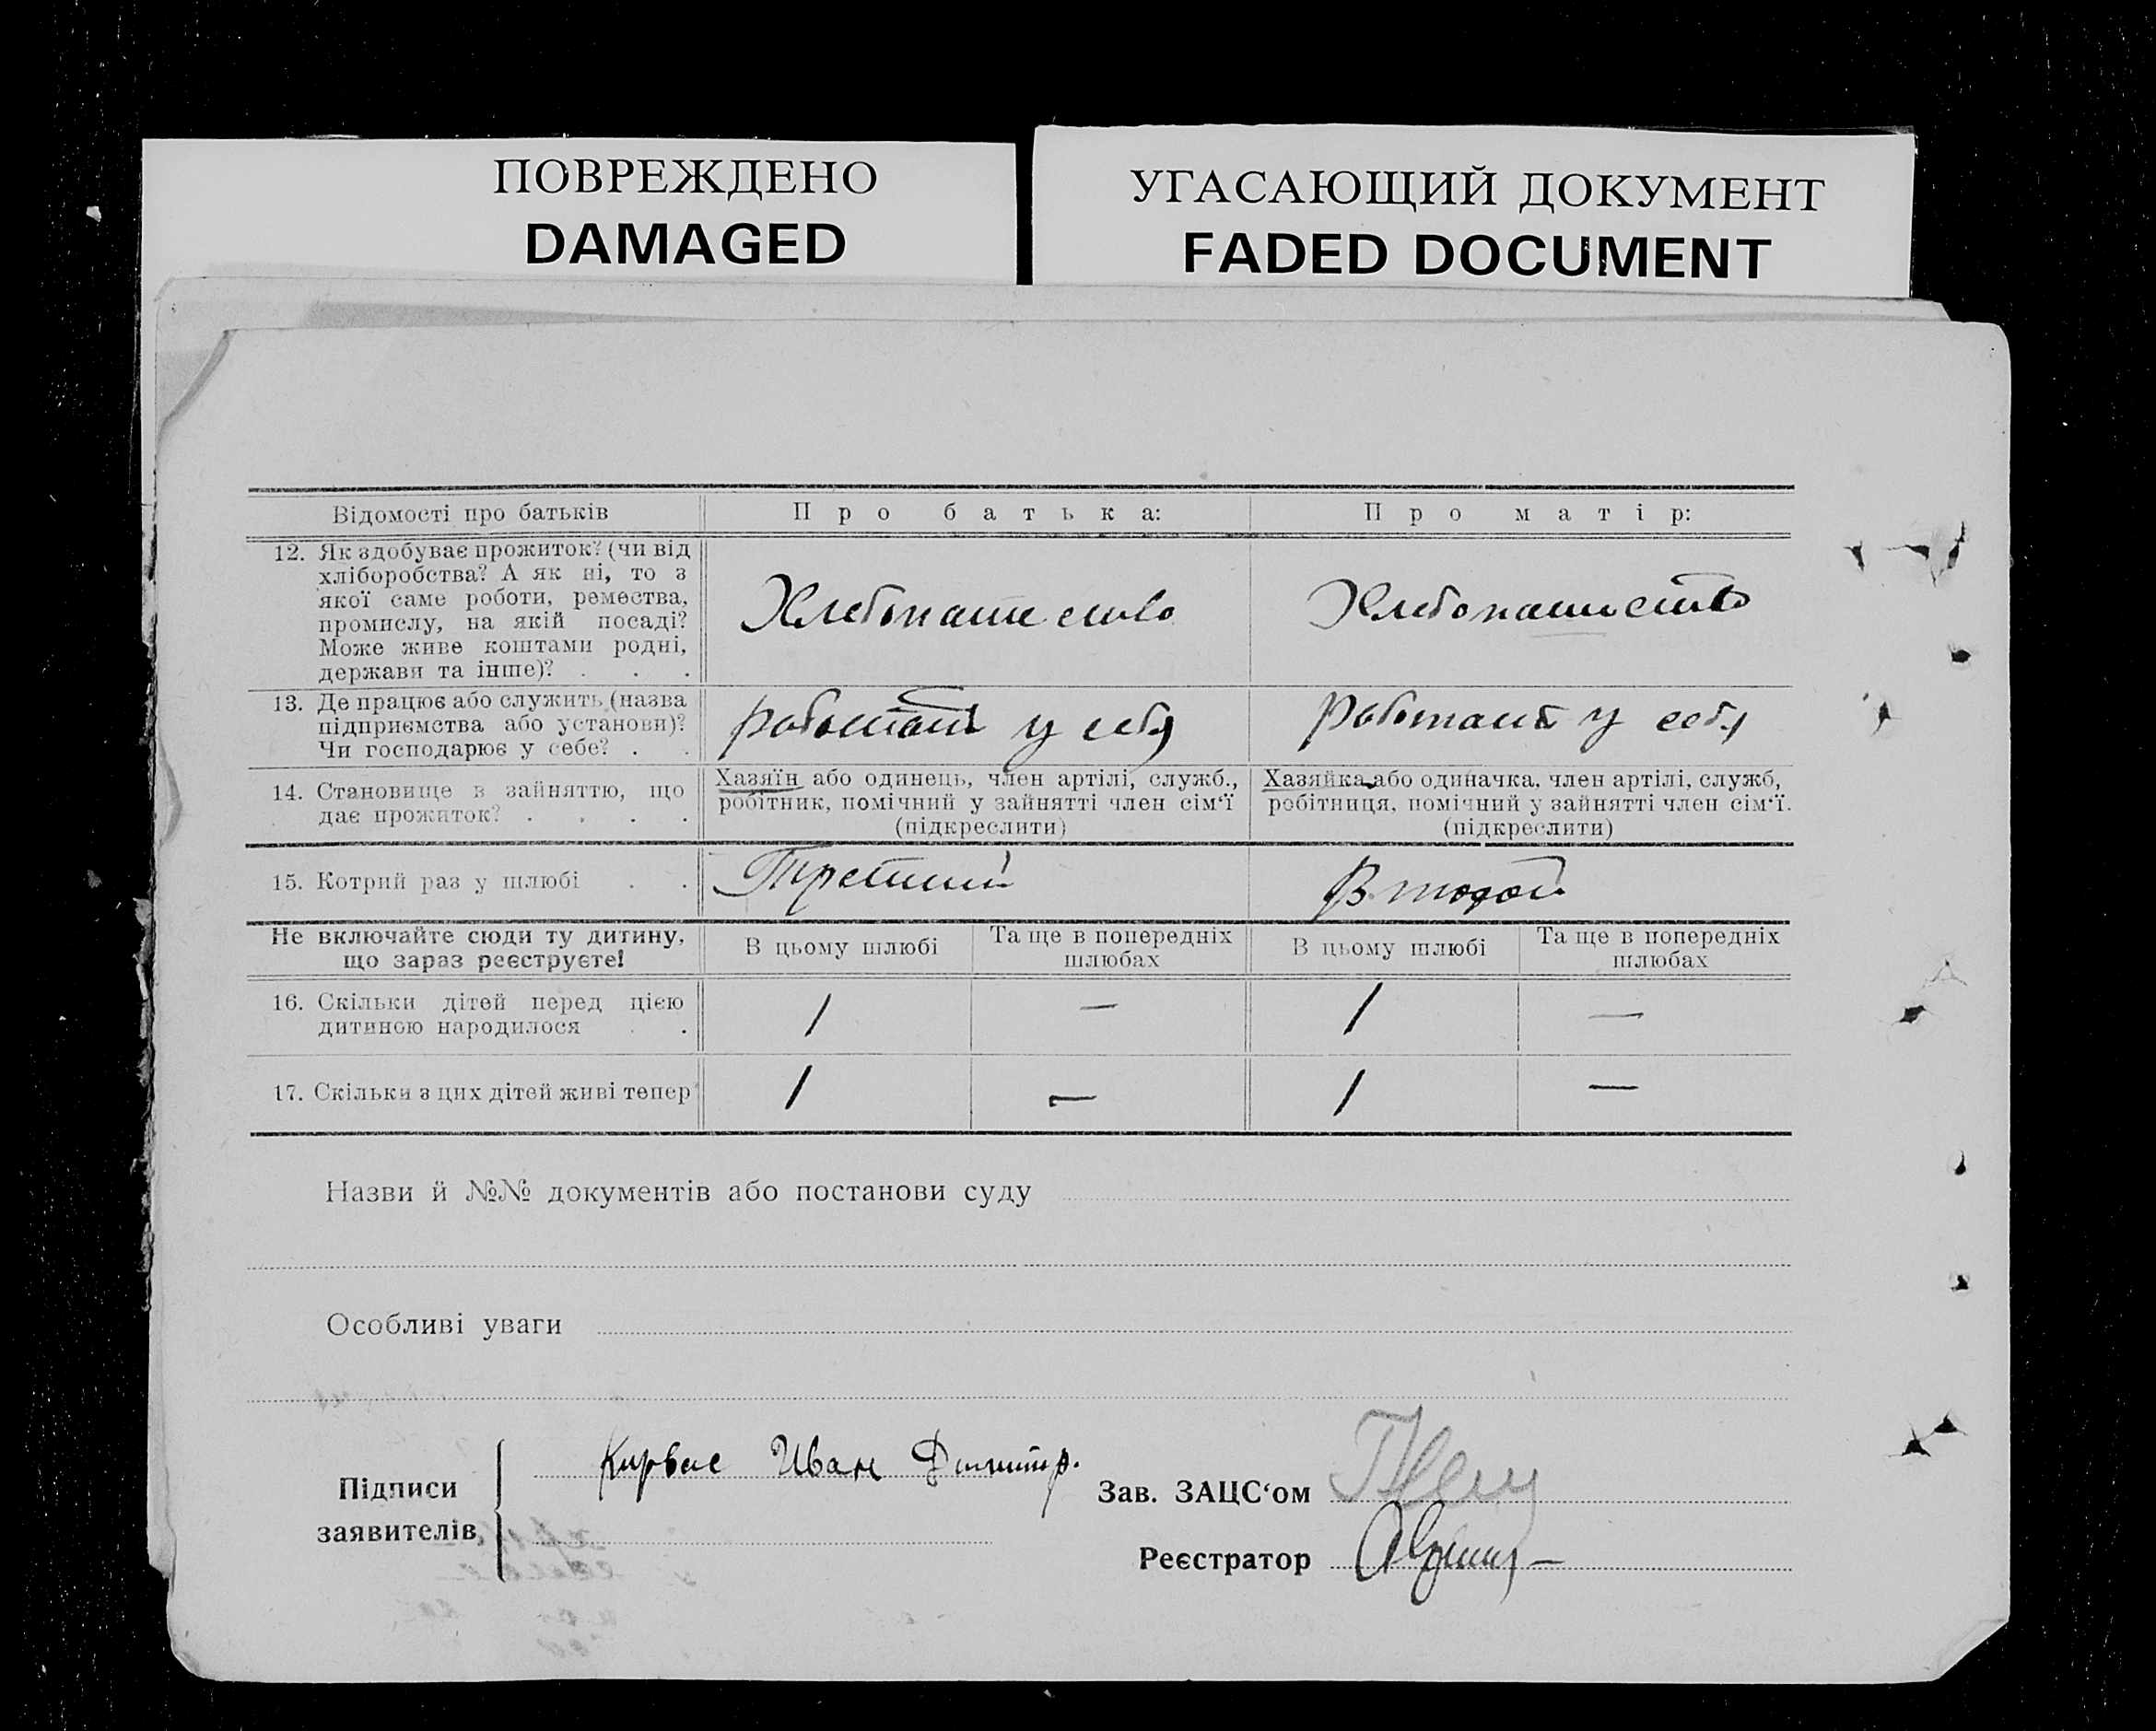 ПОВРЕЖДЕНО
DAMAGED
УГАСАЮЩИЙ ДОКУМЕНТ
FADED DOCUMENT
Відомості про батьків
Про батька:
Про матір:
12. Як здобуває прожиток? (чи від
хліборобства? А як ні, то з
якої саме роботи, ремества,
промислу, на якій посаді?
Може живе коштами родні,
держави та інше)? . . .
Хлебопашество
Хлебопашество
13. Де працює або служить (назва
підприємства або установи)?
Чи господарює у себе? . .
работает у себя
работает у себя
14. Становище в зайняттю, що
дає прожиток? . . . .
Хазяїн або одинець, член артілі, служб.,
робітник, помічний у зайнятті член сім‘ї
(підкреслити)
Хазяйка або одиначка, член артілі, служб,
робітниця, помічний у зайнятті член сім‘ї.
(підкреслити)
15. Котрий раз у шлюбі . .
Третий
Второй
Не включайте сюди ту дитину,
що зараз реєструєте!
В цьому шлюбі
Та ще в попередніх
шлюбах
В цьому шлюбі
Та ще в попередніх
шлюбах
16. Скільки дітей перед цією
дитиною народилося . .
1 — 1 —
17. Скільки з цих дітей живі тепер
1 — 1 —
Назви й №№ документів або постанови суду
Особливі уваги
Підписи
заявителів,
Иван Дмитр.
Зав. ЗАЦС‘ом
Реєстратор